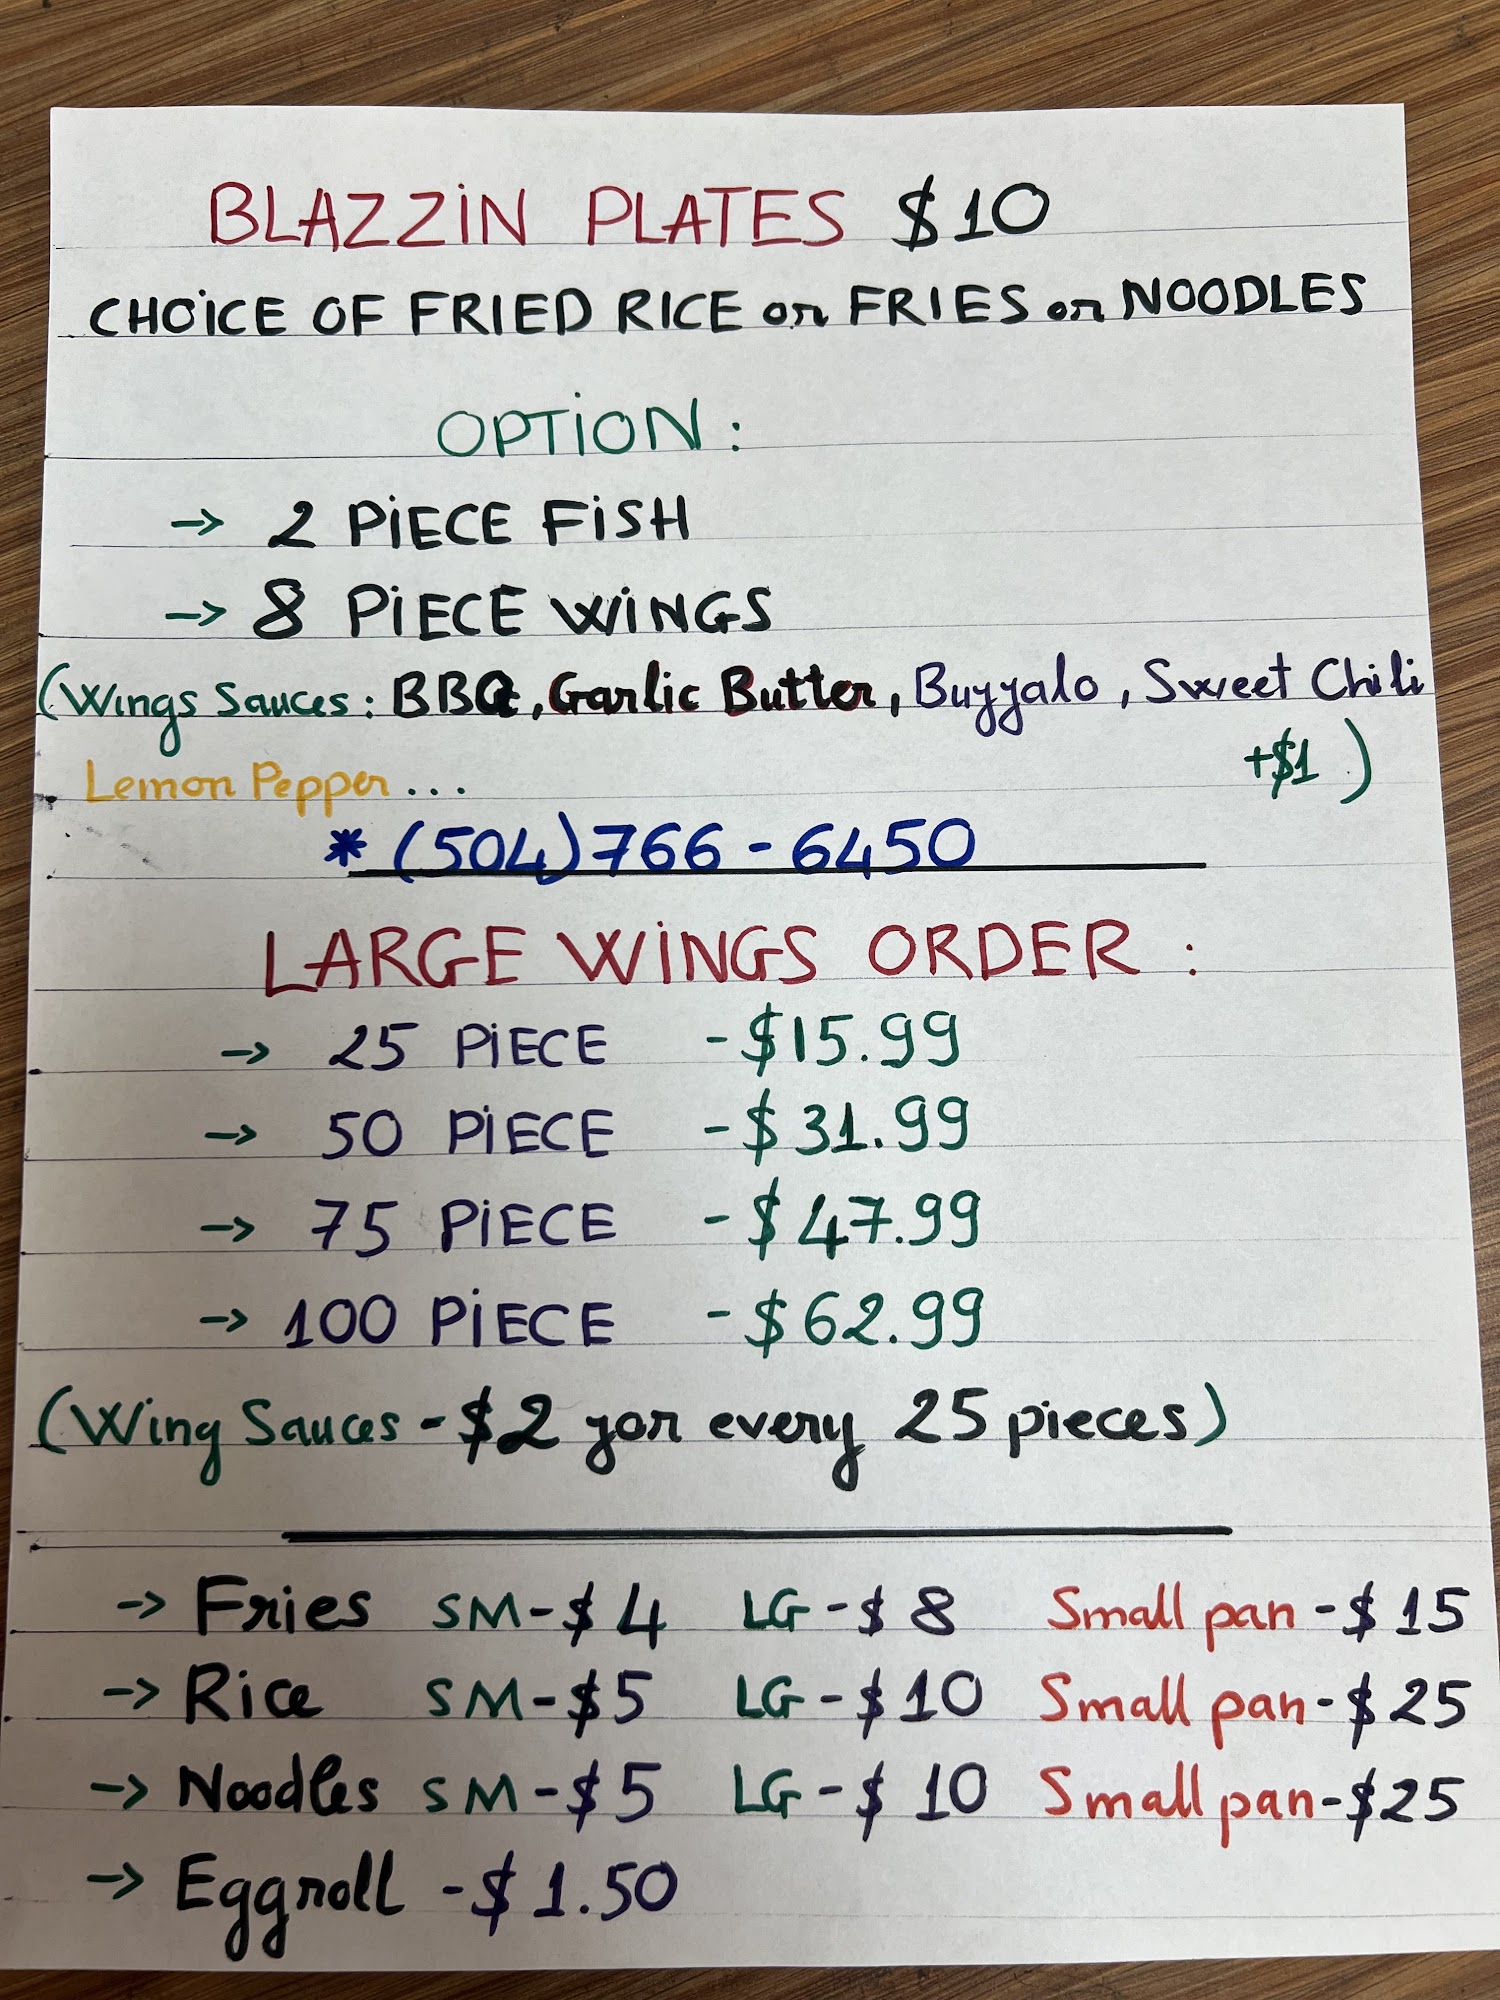 BLAZZIN PLATES $10
CHOICE OF FRIED RICE or FRIES or NOODLES
OPTION:
→ 2 PIECE FISH
→ 8 PIECE WINGS
(Wings Sauces: BBQ, Garlic Butter, Buffalo, Sweet Chili
Lemon Pepper... +$1)
* (504)766-6450
LARGE WINGS ORDER:
→ 25 PIECE -$15.99
→ 50 PIECE -$31.99
→ 75 PIECE -$47.99
→ 100 PIECE -$62.99
(Wing Sauces -$2 for every 25 pieces)
→ Fries SM-$4 LG-$8 Small pan-$15
→ Rice SM-$5 LG-$10 Small pan-$25
→ Noodles SM-$5 LG-$10 Small pan-$25
→ Eggroll -$1.50